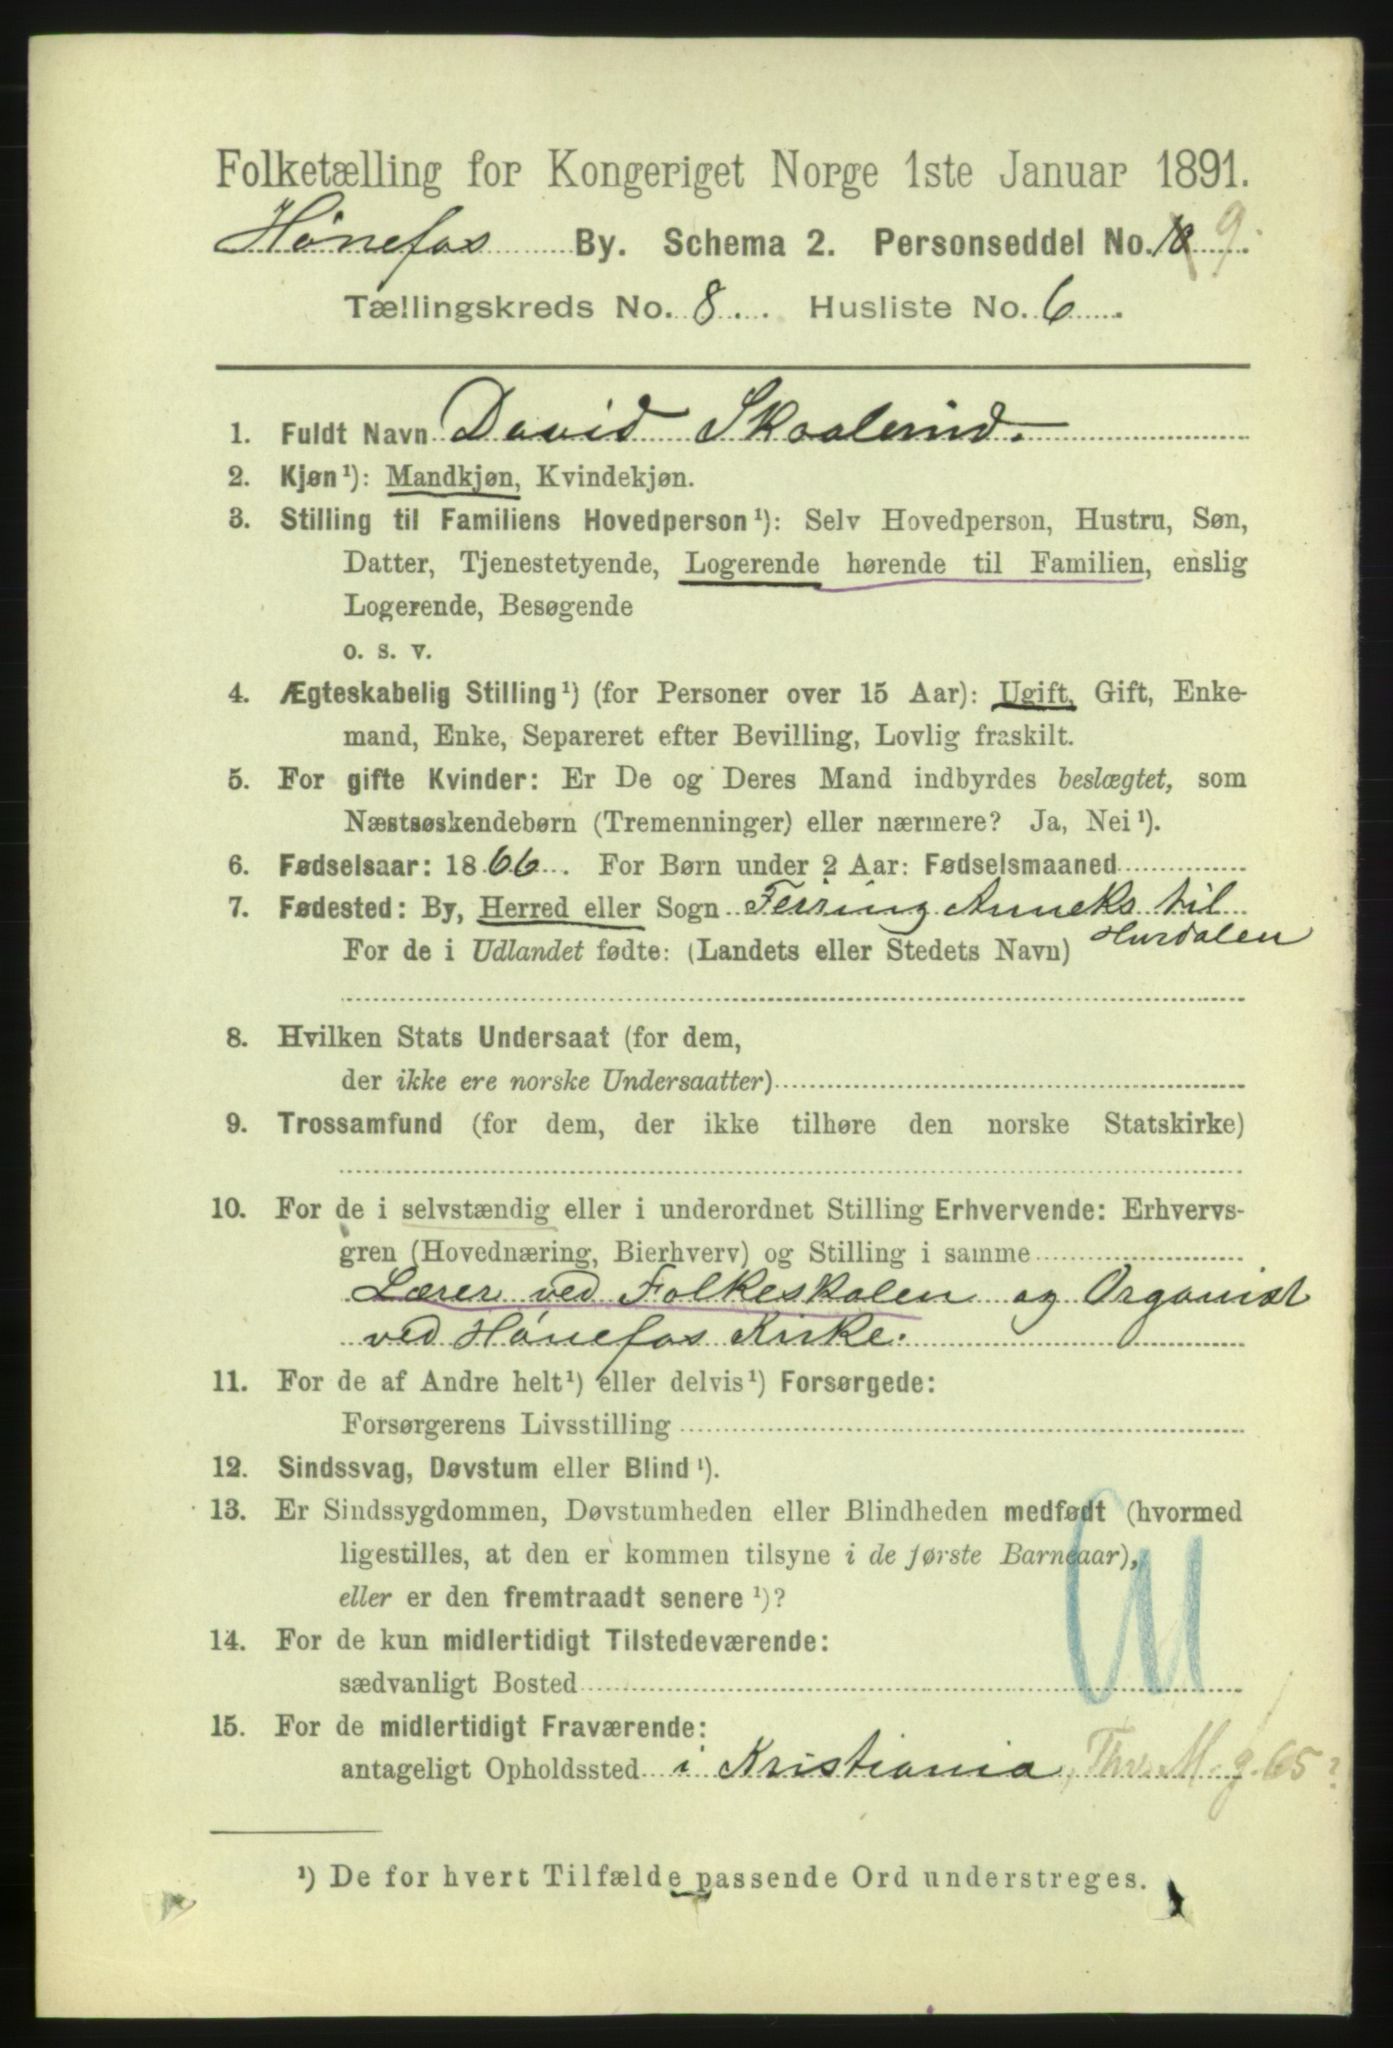 Folketælling for Kongeriget Norge 1ste Januar 1891.
Hönefos By. Schema 2. Personseddel No. 10 9.
Tællingskreds No. 8. Husliste No. 6.
1. Fuldt Navn David Skaalerud.
2. Kjøn¹): Mandkjøn, Kvindekjøn.
3. Stilling til Familiens Hovedperson¹): Selv Hovedperson, Hustru, Søn,
Datter, Tjenestetyende, Logerende hørende til Familien, enslig
Logerende, Besøgende
o. s. v.
4. Ægteskabelig Stilling¹) (for Personer over 15 Aar): Ugift, Gift, Enke-
mand, Enke, Separeret efter Bevilling, Lovlig fraskilt.
5. For gifte Kvinder: Er De og Deres Mand indbyrdes beslægtet, som
Næstsøskendebørn (Tremenninger) eller nærmere? Ja, Nei¹).
6. Fødselsaar: 1866. For Børn under 2 Aar: Fødselsmaaned
7. Fødested: By, Herred eller Sogn Feiring Anneks til
Hurdalen
For de i Udlandet fødte: (Landets eller Stedets Navn)
8. Hvilken Stats Undersaat (for dem,
der ikke ere norske Undersaatter)
9. Trossamfund (for dem, der ikke tilhøre den norske Statskirke)
10. For de i selvstændig eller i underordnet Stilling Erhvervende: Erhvervs-
gren (Hovednæring, Bierhverv) og Stilling i samme
Lærer ved Folkeskolen og Organist
ved Hönefos Kirke.
11. For de af Andre helt¹) eller delvis¹) Forsørgede:
Forsørgerens Livsstilling
12. Sindssvag, Døvstum eller Blind¹).
13. Er Sindssygdommen, Døvstumheden eller Blindheden medfødt (hvormed
ligestilles, at den er kommen tilsyne i de første Barneaar),
eller er den fremtraadt senere¹)?
14. For de kun midlertidigt Tilstedeværende:
sædvanligt Bosted
15. For de midlertidigt Fraværende:
antageligt Opholdssted i Kristiania, Thv. M. g. 65?
¹) De for hvert Tilfælde passende Ord understreges.